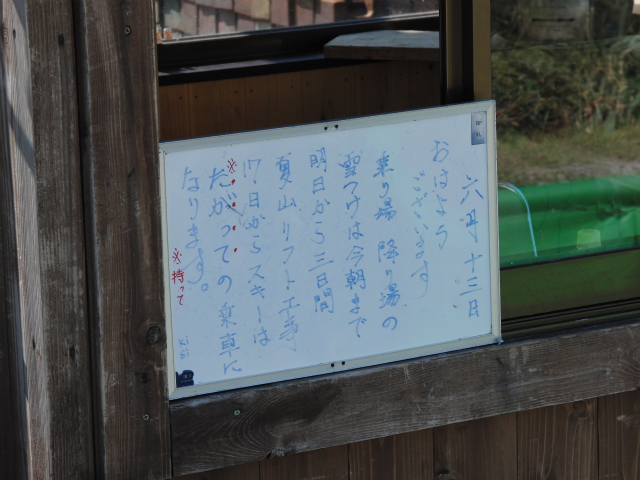 六月十三日
おはよう
ございます
乗り場 降り場の
雪つけは今朝まで
明日から三日間
夏山リフト工事
17日からスキーは
だがっての乗車に
なります。
※持って